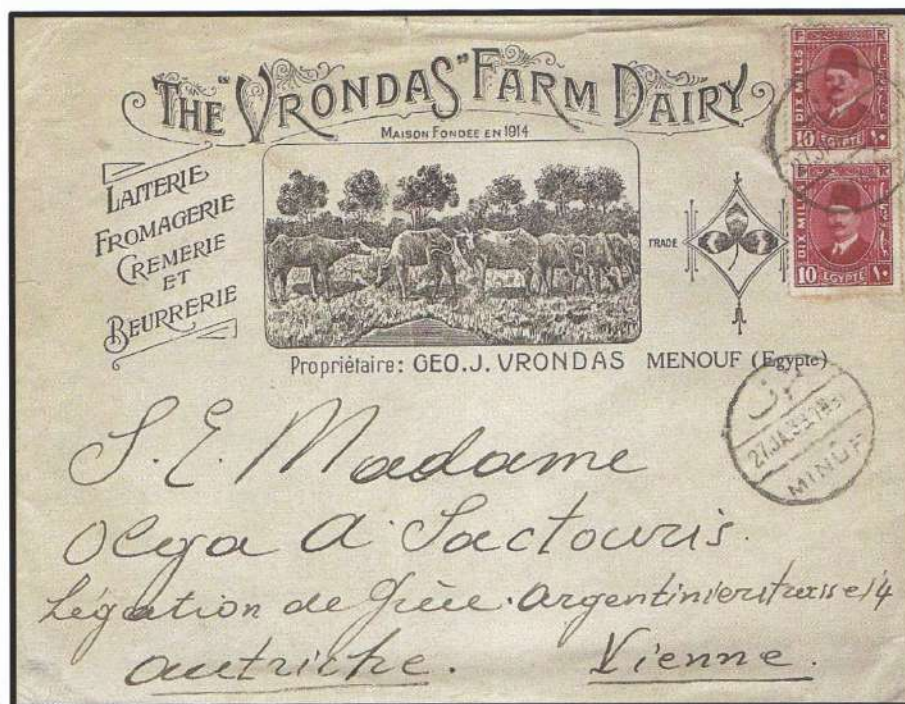 THE "VRONDAS" FARM DAIRY
MAISON FONDÉE EN 1914
LAITERIE
FROMAGERIE
CREMERIE
ET
BEURRERIE
TRADE
Propriétaire: GEO. J. VRONDAS MENOUF (Egypte)
F R
DIX MILLS
10 EGYPTE ١٠
F R
DIX MILLS
10 EGYPTE ١٠
27.JA
منوف
27.JA.33.7
MINUF
S. E. Madame
Olga A. Sactouris.
Légation de Grèce. Argentinierstrasse 14
Autriche. Vienne.